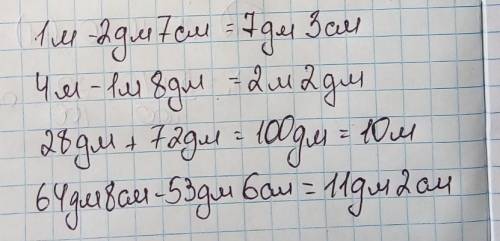 1м - 2дм 7см = 7дм 3см
4м - 1м 8дм = 2м 2дм
28дм + 72дм = 100дм = 10м
64дм 8см - 53дм 6см = 11дм 2см